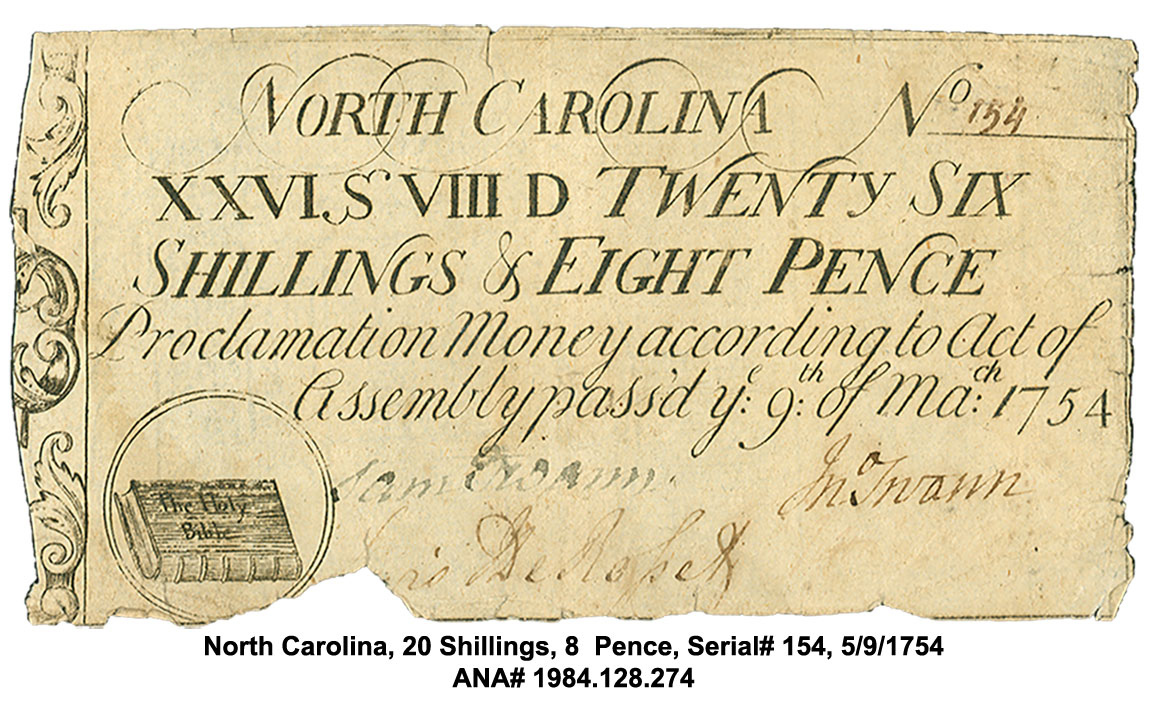 NORTH CAROLINA No 154
XXVI S VIII D TWENTY SIX
SHILLINGS & EIGHT PENCE
Proclamation Money according to Act of
Assembly pass'd ye: 9th: of Ma:ch 1754
The Holy
Bible
Sam Swann
Jno Swann
De Rosset
North Carolina, 20 Shillings, 8 Pence, Serial# 154, 5/9/1754
ANA# 1984.128.274